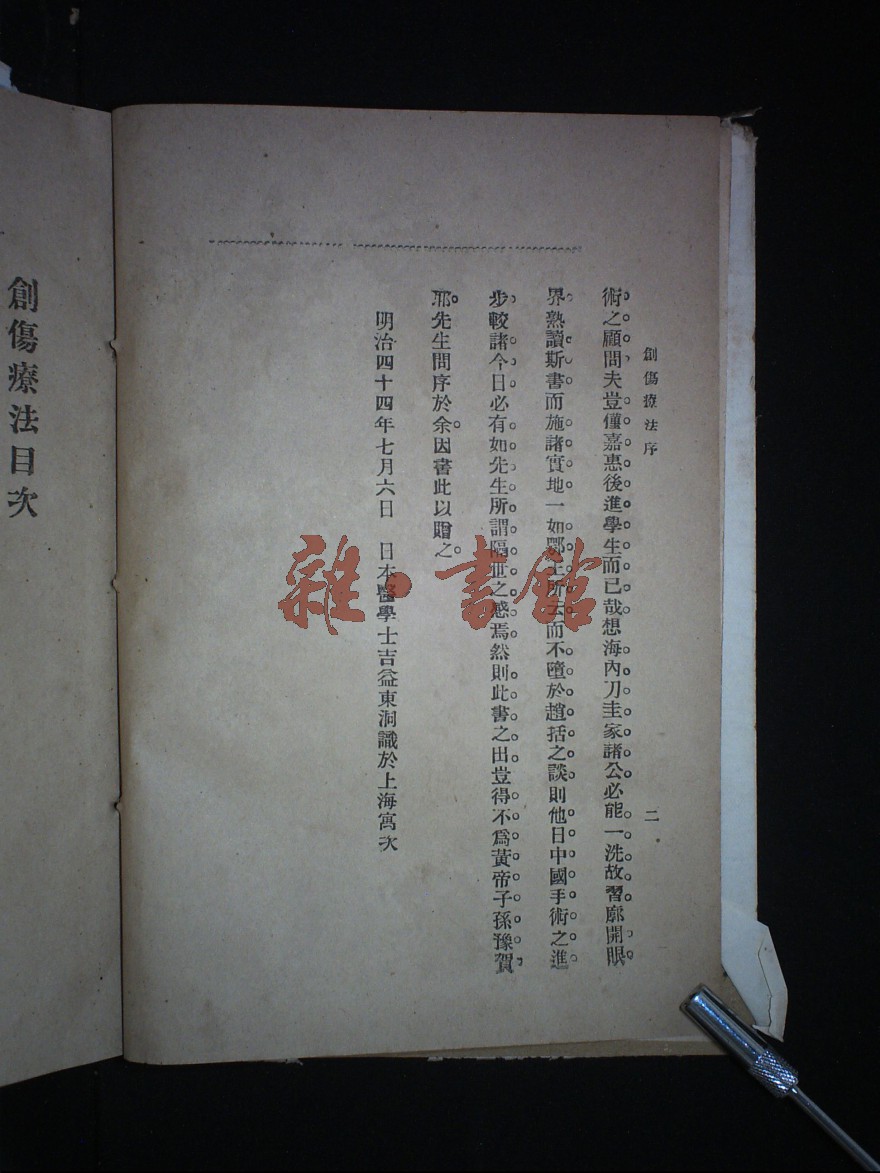 創傷療法序
二
術之顧問夫豈僅嘉惠後進學生而已哉想海內刀圭家諸公必能一洗故習廓開眼
界熟讀斯書而施諸實地一如鄙上所云而不墮於趙括之談則他日中國手術之進
步較諸今日必有如先生所謂隔世之感焉然則此書之出豈得不爲黃帝子孫豫賀
耶先生問序於余因書此以贈之
明治四十四年七月六日　日本醫學士吉益東洞識於上海寓次
創傷療法目次
雜·書館